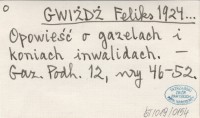 GWIŻDŻ Feliks 1924...
Opowieść o gazelach i
koniach inwalidach. —
Gaz. Podh. 12, nry 46-52.